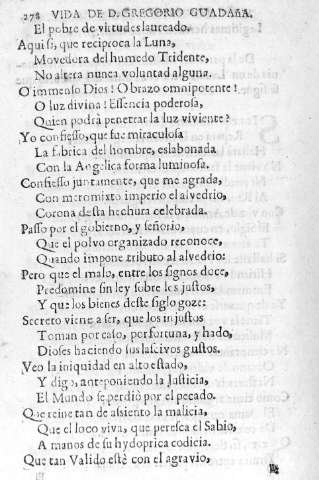 278 VIDA DE D. GREGORIO GUADAñA.
El pobre de virtudes laureado.
Aqui si, que reciproca la Luna,
Movedora del humedo Tridente,
No altera nunca voluntad alguna.
O immenso Dios! O brazo omnipotente!
O luz divina! Essencia poderosa,
Quien podrà penetrar la luz viviente?
Yo confiesso, que fue miraculosa
La fabrica del hombre, eslabonada
Con la Angelica forma luminosa.
Confiesso juntamente, que me agrada,
Con meromixto imperio el alvedrio,
Corona desta hechura celebrada.
Passo por el gobierno, y señorio,
Que el polvo organizado reconoce,
Quando impone tributo al alvedrio:
Pero que el malo, entre los signos doce,
Predomine sin ley sobre los justos,
Y que los bienes deste siglo goze:
Secreto viene a ser, que los injustos
Toman por caso, por fortuna, y hado,
Dioses haciendo sus lascivos gustos.
Veo la iniquidad en alto estado,
Y digo, anteponiendo la Justicia,
El Mundo se perdiò por el pecado.
Que reine tan de assiento la malicia,
Que el loco viva, que peresca el Sabio,
A manos de su hydropica codicia.
Que tan Valido estè con el agravio,